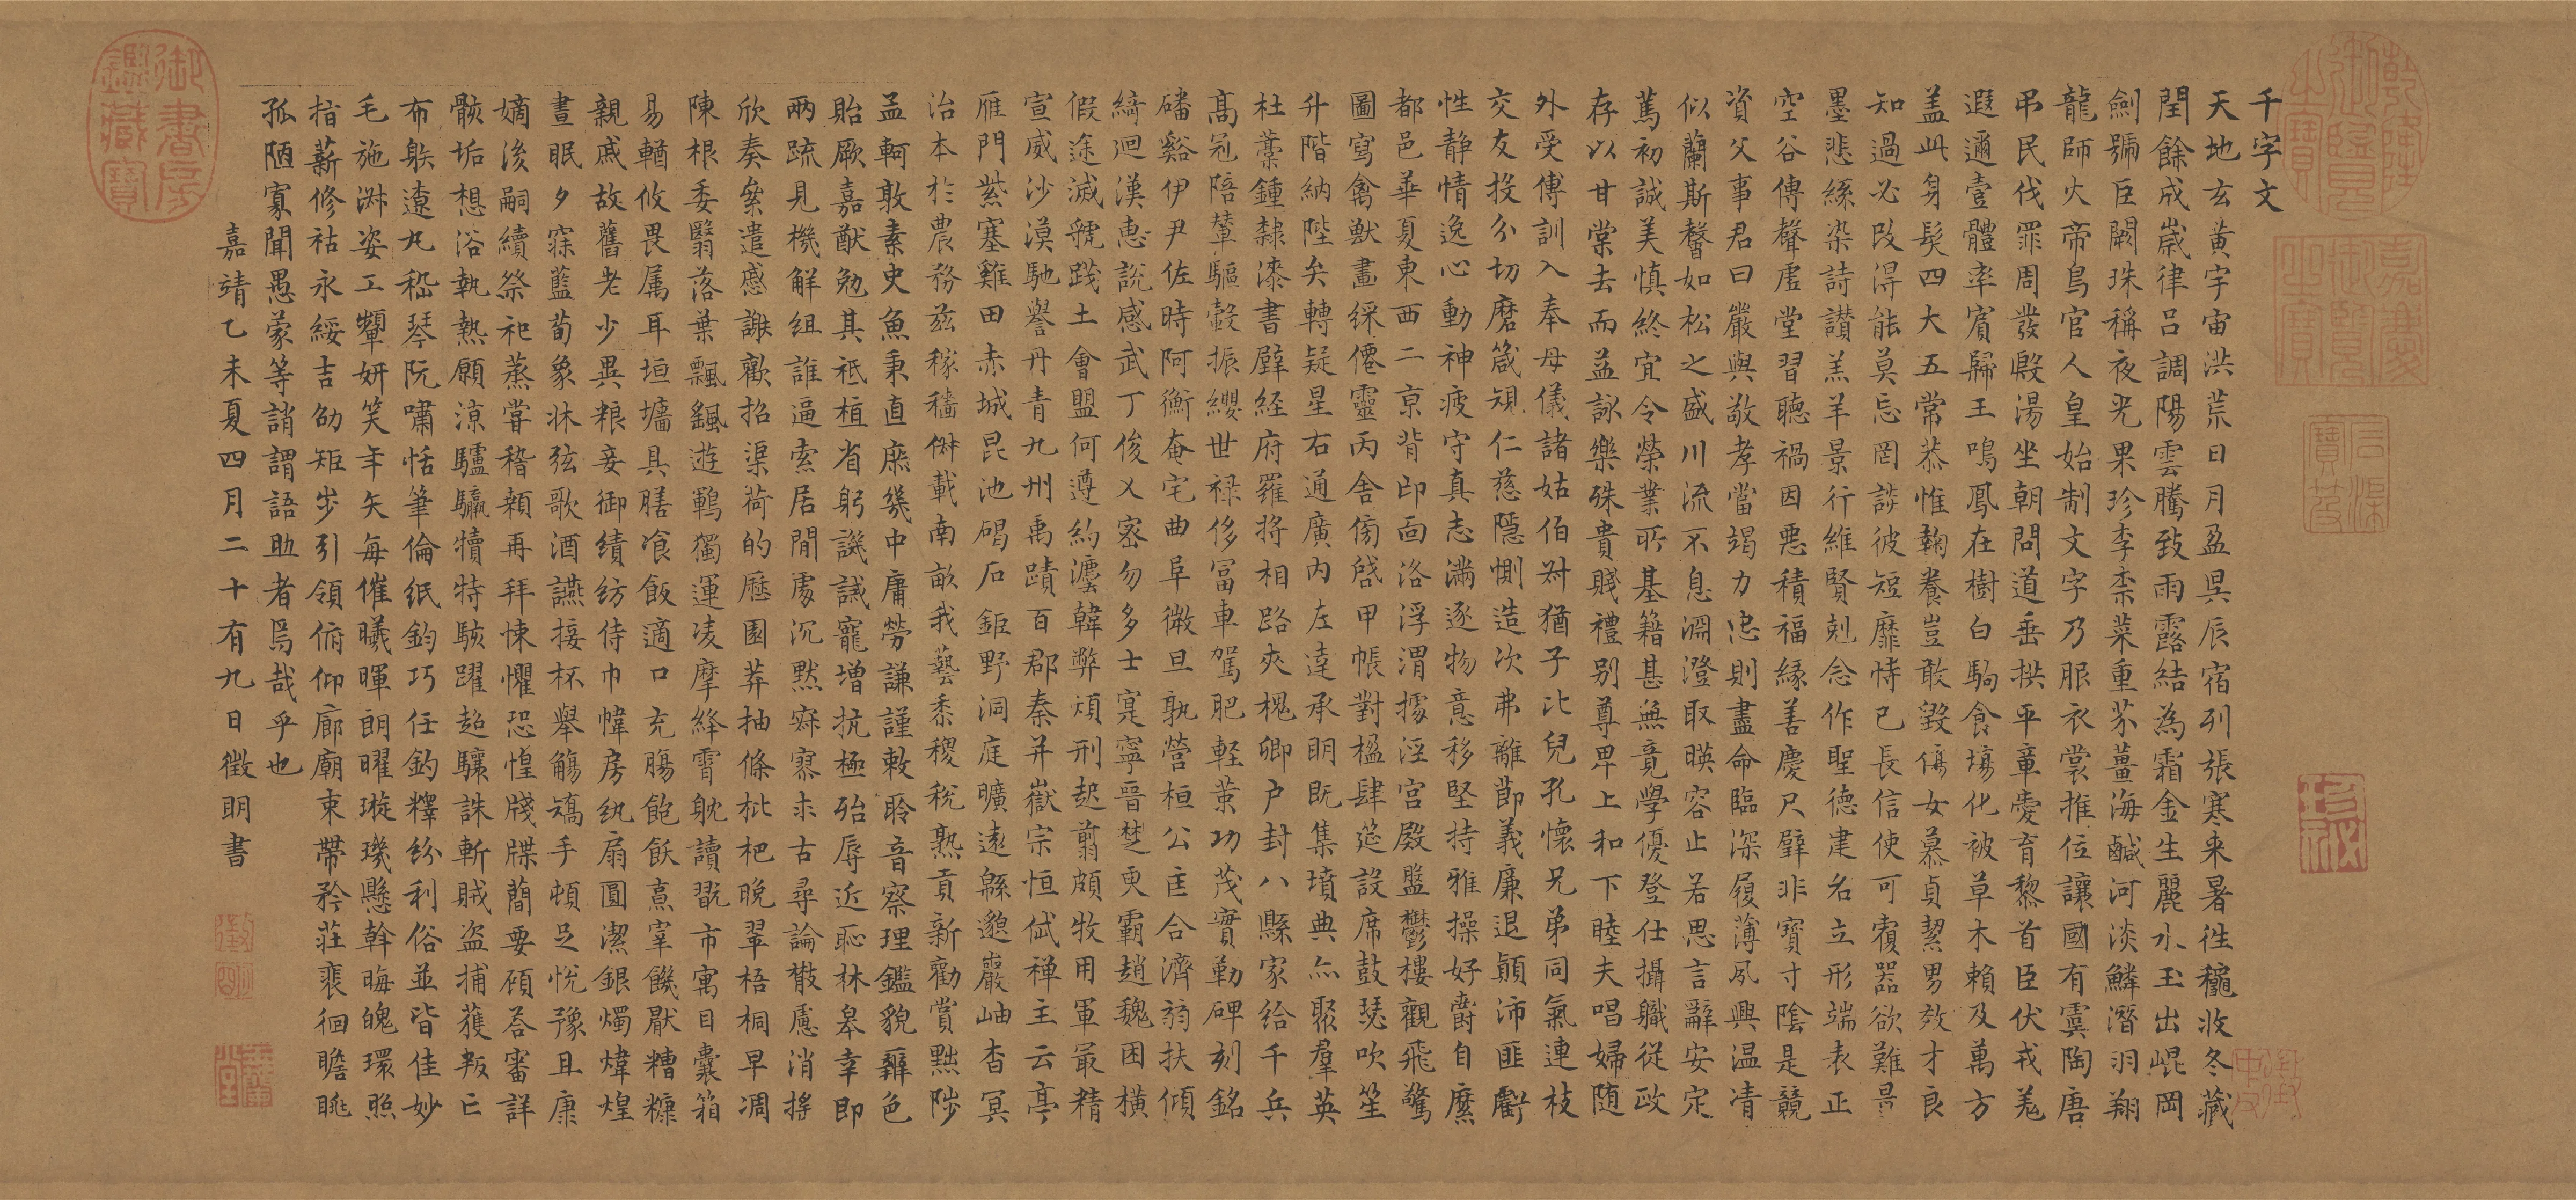 千字文
天地玄黃宇宙洪荒日月盈昃辰宿列張寒来暑徃穐收冬藏
閏餘成歲律呂調陽雲騰致雨露結為霜金生麗水玉出崐岡
劍號巨闕珠稱夜光果珍李柰菜重芥薑海鹹河淡鱗潛羽翔
龍師火帝鳥官人皇始制文字乃服衣裳推位讓國有虞陶唐
吊民伐罪周發殷湯坐朝問道垂拱平章愛育黎首臣伏戎羌
遐邇壹體率賓歸王鳴鳳在樹白駒食場化被草木賴及萬方
盖此身髮四大五常恭惟鞠養豈敢毀傷女慕貞絜男效才良
知過必改得能莫忘罔談彼短靡恃己長信使可覆器欲難量
墨悲絲染詩讃羔羊景行維賢剋念作聖德建名立形端表正
空谷傳聲虛堂習聽禍因惡積福緣善慶尺璧非寶寸陰是競
資父事君曰嚴與敬孝當竭力忠則盡命臨深履薄夙興温凊
似蘭斯馨如松之盛川流不息淵澄取暎容止若思言辭安定
篤初誠美慎終宜令榮業所基籍甚無竟學優登仕攝職從政
存以甘棠去而益詠樂殊貴賤禮别尊卑上和下睦夫唱婦随
外受傅訓入奉母儀諸姑伯叔猶子比兒孔懷兄弟同氣連枝
交友投分切磨箴規仁慈隱惻造次弗離節義廉退顛沛匪虧
性静情逸心動神疲守真志滿逐物意移堅持雅操好爵自縻
都邑華夏東西二京背邙面洛浮渭據涇宮殿盤鬱樓觀飛驚
圖寫禽獸畫綵僊靈丙舍傍啓甲帳對楹肆筵設席鼓瑟吹笙
升階納陛弁轉疑星右通廣内左達承明既集墳典亦聚羣英
杜藁鍾隸漆書壁經府羅將相路夾槐卿户封八縣家給千兵
高冠陪輦驅轂振纓世禄侈富車駕肥軽策功茂實勒碑刻銘
磻谿伊尹佐時阿衡奄宅曲阜微旦孰營桓公匡合濟弱扶傾
綺迴漢惠說感武丁俊乂密勿多士寔寧晉楚更霸趙魏困橫
假途滅虢踐土會盟何遵約灋韓弊煩刑起翦頗牧用軍最精
宣威沙漠馳譽丹青九州禹蹟百郡秦并嶽宗恒岱禅主云亭
雁門紫塞雞田赤城昆池碣石鉅野洞庭曠遠緜邈巖岫杳冥
治本於農務兹稼穡俶載南畝我藝黍稷稅熟貢新勸賞黜陟
孟軻敦素史魚秉直庶幾中庸勞謙謹敕聆音察理鑑貌辨色
貽厥嘉猷勉其祗植省躬譏誡寵增抗極殆辱近恥林皋幸即
兩疏見機解組誰逼索居閒處沉默寂寥求古尋論散慮消搖
欣奏累遣慼謝歡招渠荷的歷園莽抽條枇杷晚翠梧桐早凋
陳根委翳落葉飄颻遊鵾獨運凌摩絳霄耽讀翫市寓目囊箱
易輶攸畏属耳垣墻具膳飡飯適口充腸飽飫烹宰饑厭糟糠
親戚故舊老少異粮妾御績紡侍巾幃房紈扇圓潔銀燭煒煌
晝眠夕寐藍荀象牀弦歌酒讌接杯舉觴矯手頓足悅豫且康
嫡後嗣續祭祀蒸甞稽顙再拜悚懼恐惶牋牒簡要顧荅審詳
骸垢想浴執熱願凉驢驘犢特駭躍超驤誅斬賊盗捕獲叛亡
布躲遼丸嵇琴阮嘯恬筆倫紙鈞巧任釣釋紛利俗並皆佳妙
毛施淑姿工顰妍笑年矢每催曦暉朗曜璇璣懸斡晦魄環照
指薪修祜永綏吉劭矩步引領俯仰廊廟束帶矜莊裵徊瞻眺
孤陋寡聞愚蒙等誚謂語助者焉哉乎也
嘉靖乙未夏四月二十有九日徵明書
乾隆御覽之寶
嘉慶御覽之寶
石渠寶笈
御書房鑑藏寶
徵明